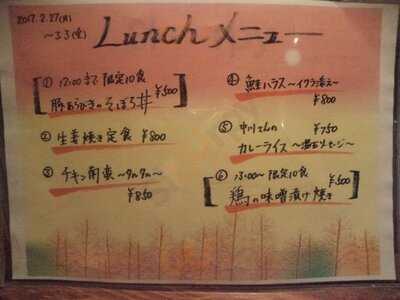 2017.2.27(月)
～3.3(金)
Lunchメニュー
① 12:00まで 限定10食
豚あらびきのそぼろ丼 ¥500
② 生姜焼き定食 ¥800
③ チキン南蛮
¥850
④ 鮭ハラス～イクラ添え～
¥800
⑤ 中川さんの ¥750
カレーライス
⑥ 13:00～ 限定10食 ¥500
鶏の味噌漬け焼き